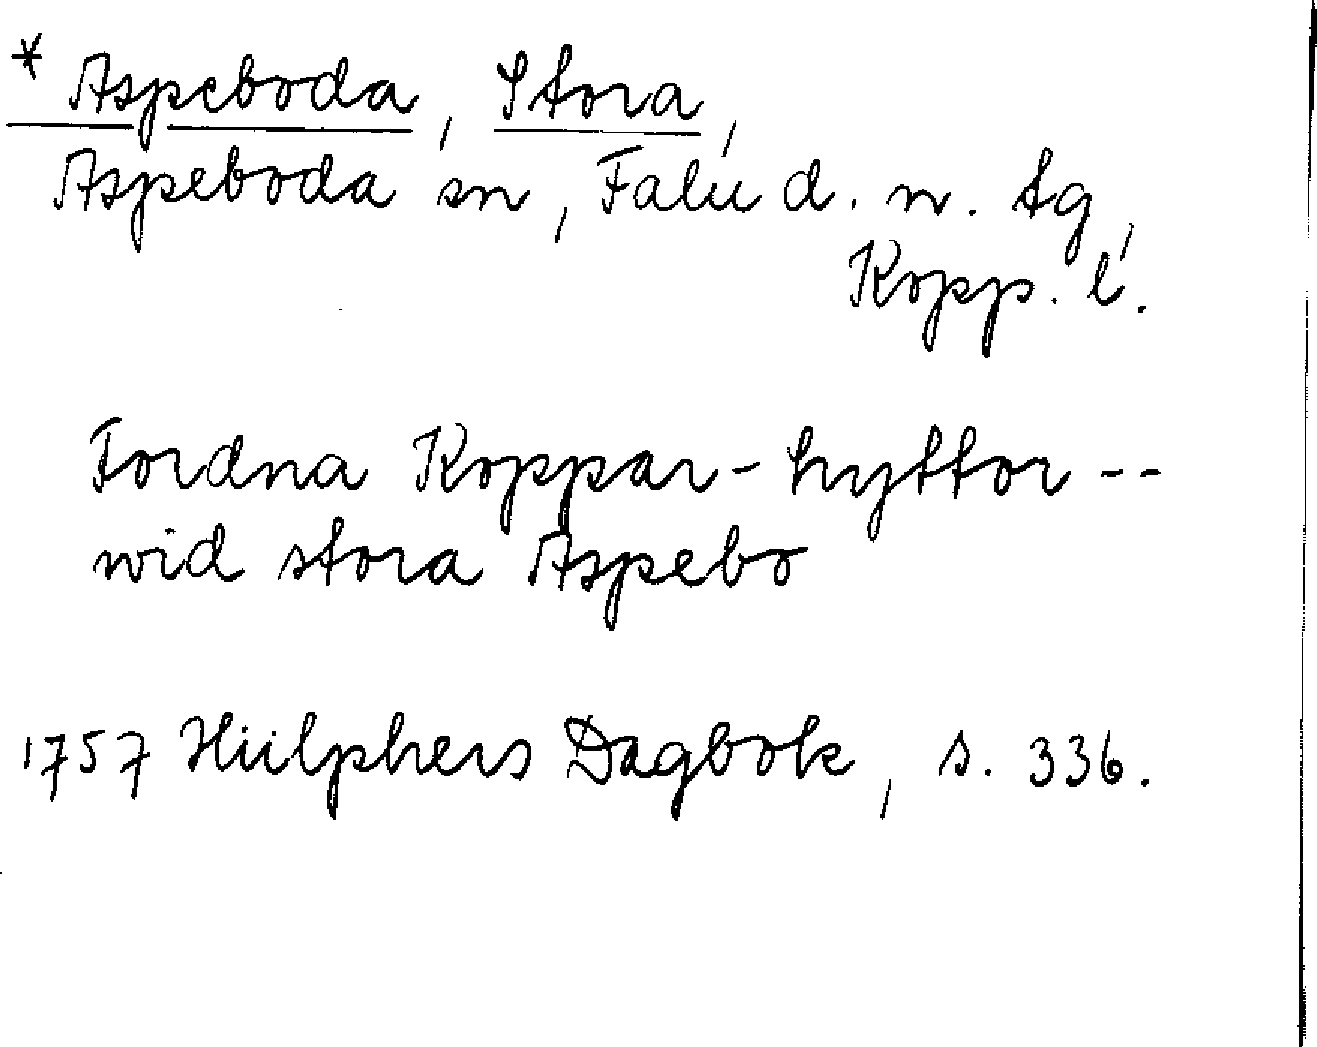 * Aspeboda, Stora,
Aspeboda sn, Falu d. n. tg,
Kopp. l.
Fordna Koppar-hyttor --
wid stora Aspebo
1757 Hülphers Dagbok, s. 336.